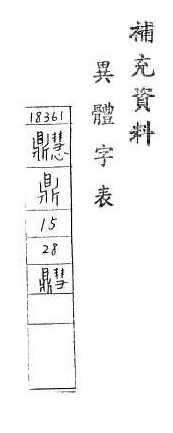 補充資料
異體字表
18361
鼎
15
28